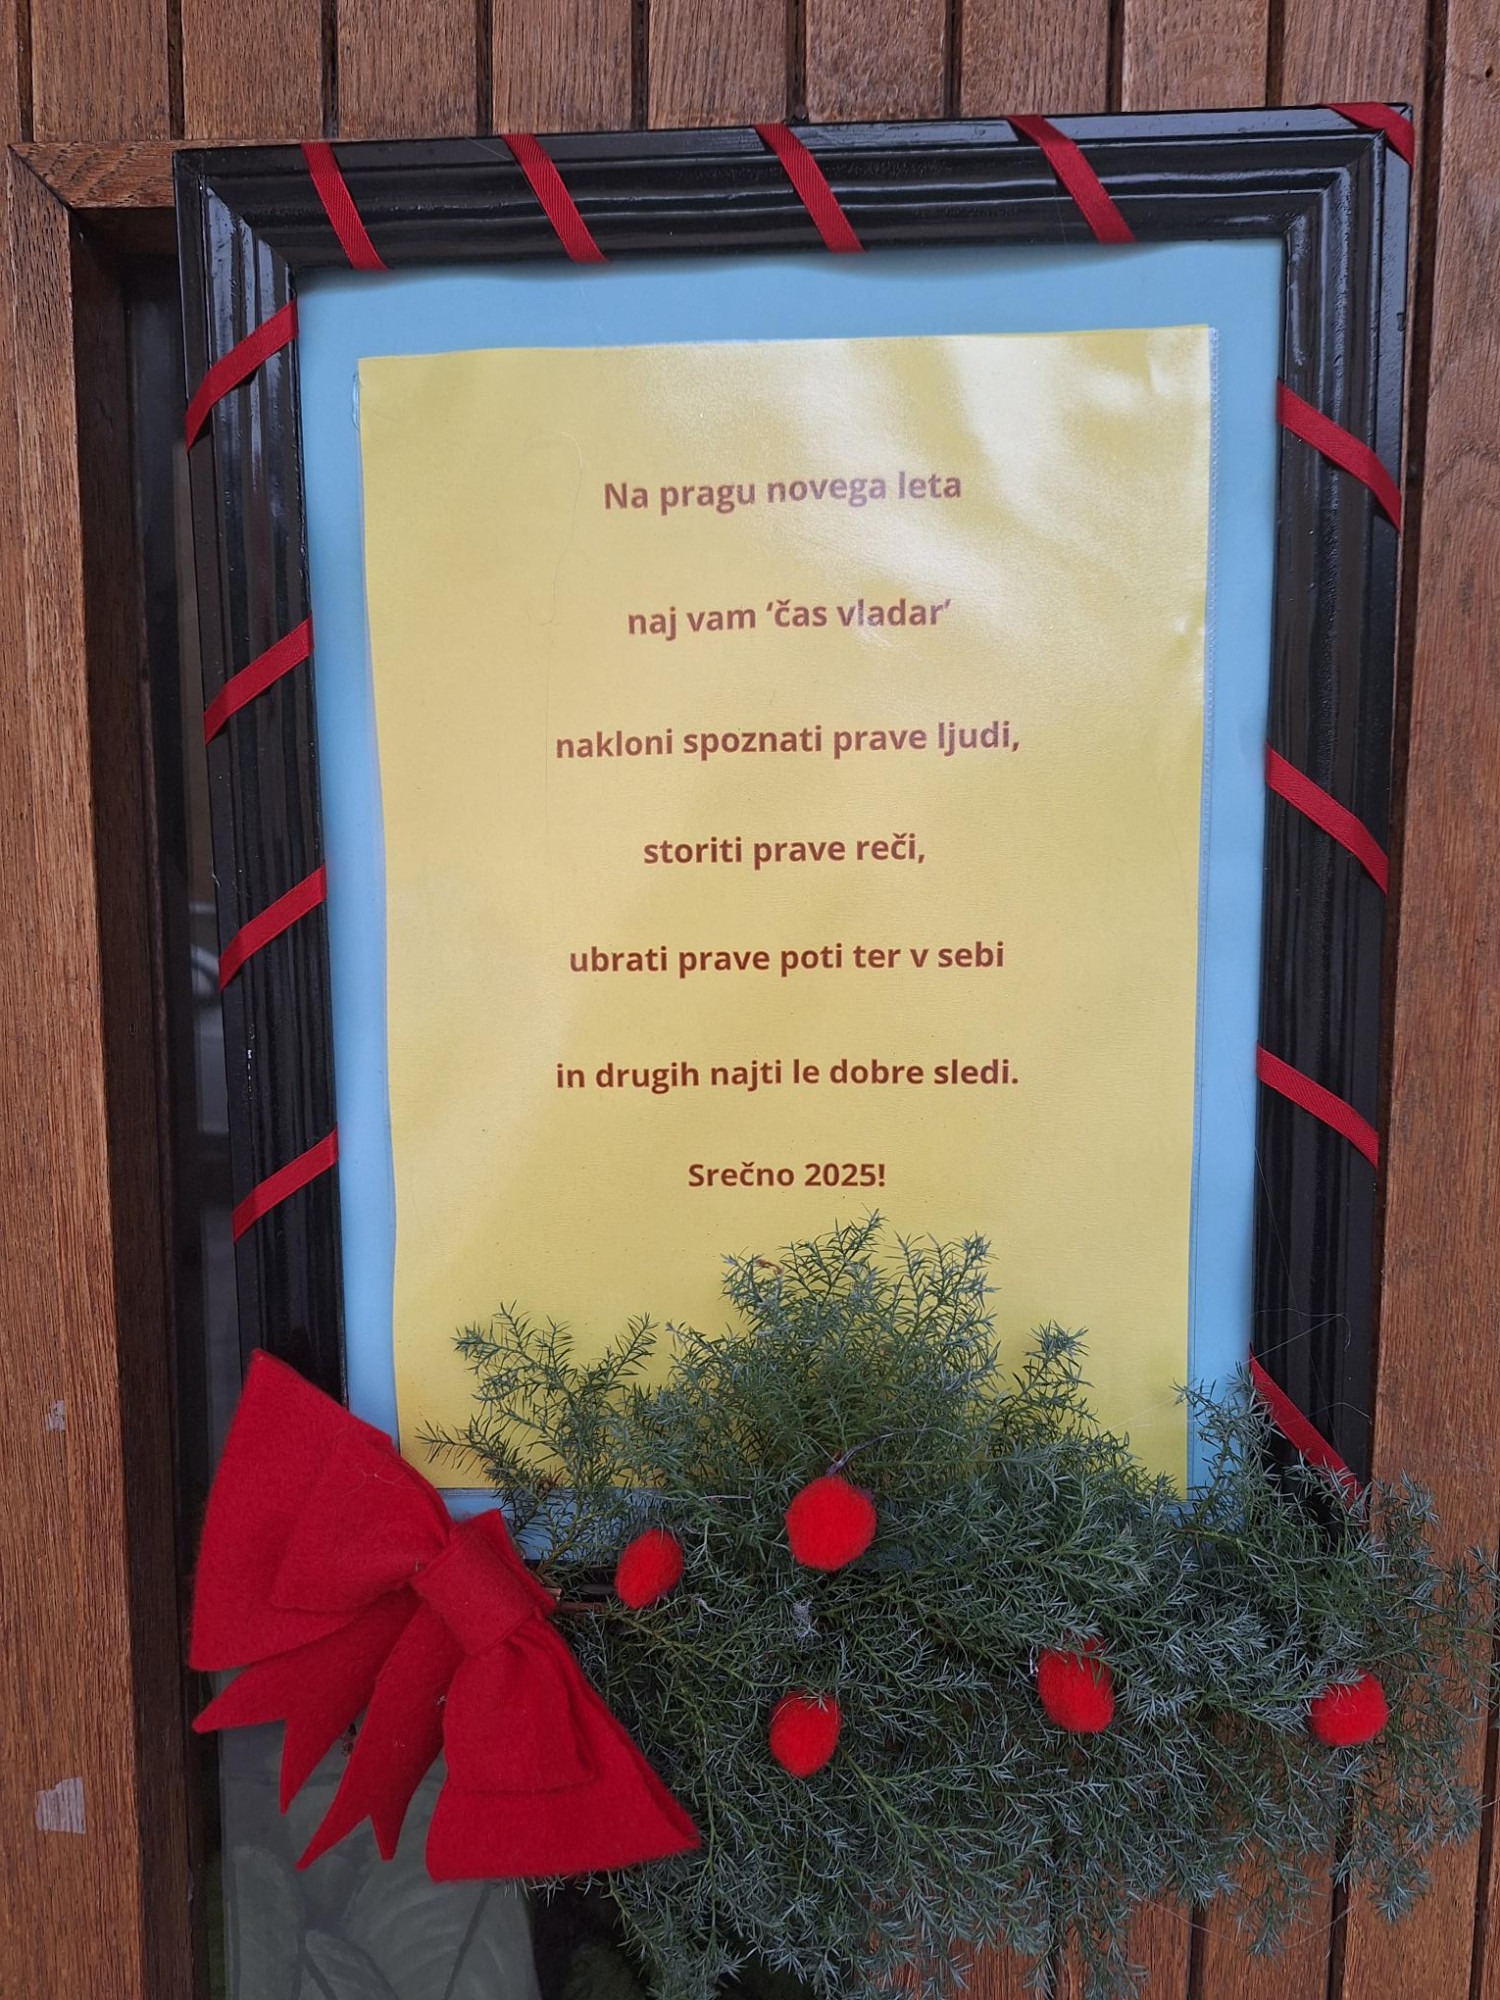 Na pragu novega leta
naj vam ‘čas vladar’
nakloni spoznati prave ljudi,
storiti prave reči,
ubrati prave poti ter v sebi
in drugih najti le dobre sledi.
Srečno 2025!